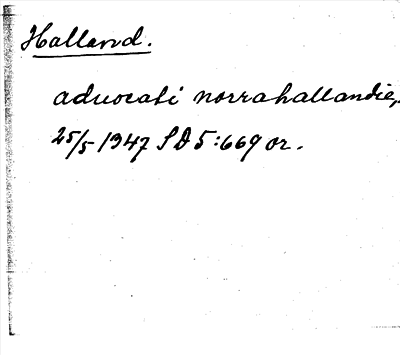 Halland.
advocati norrahallandie,
25/5 1347 SD 5:669 or.